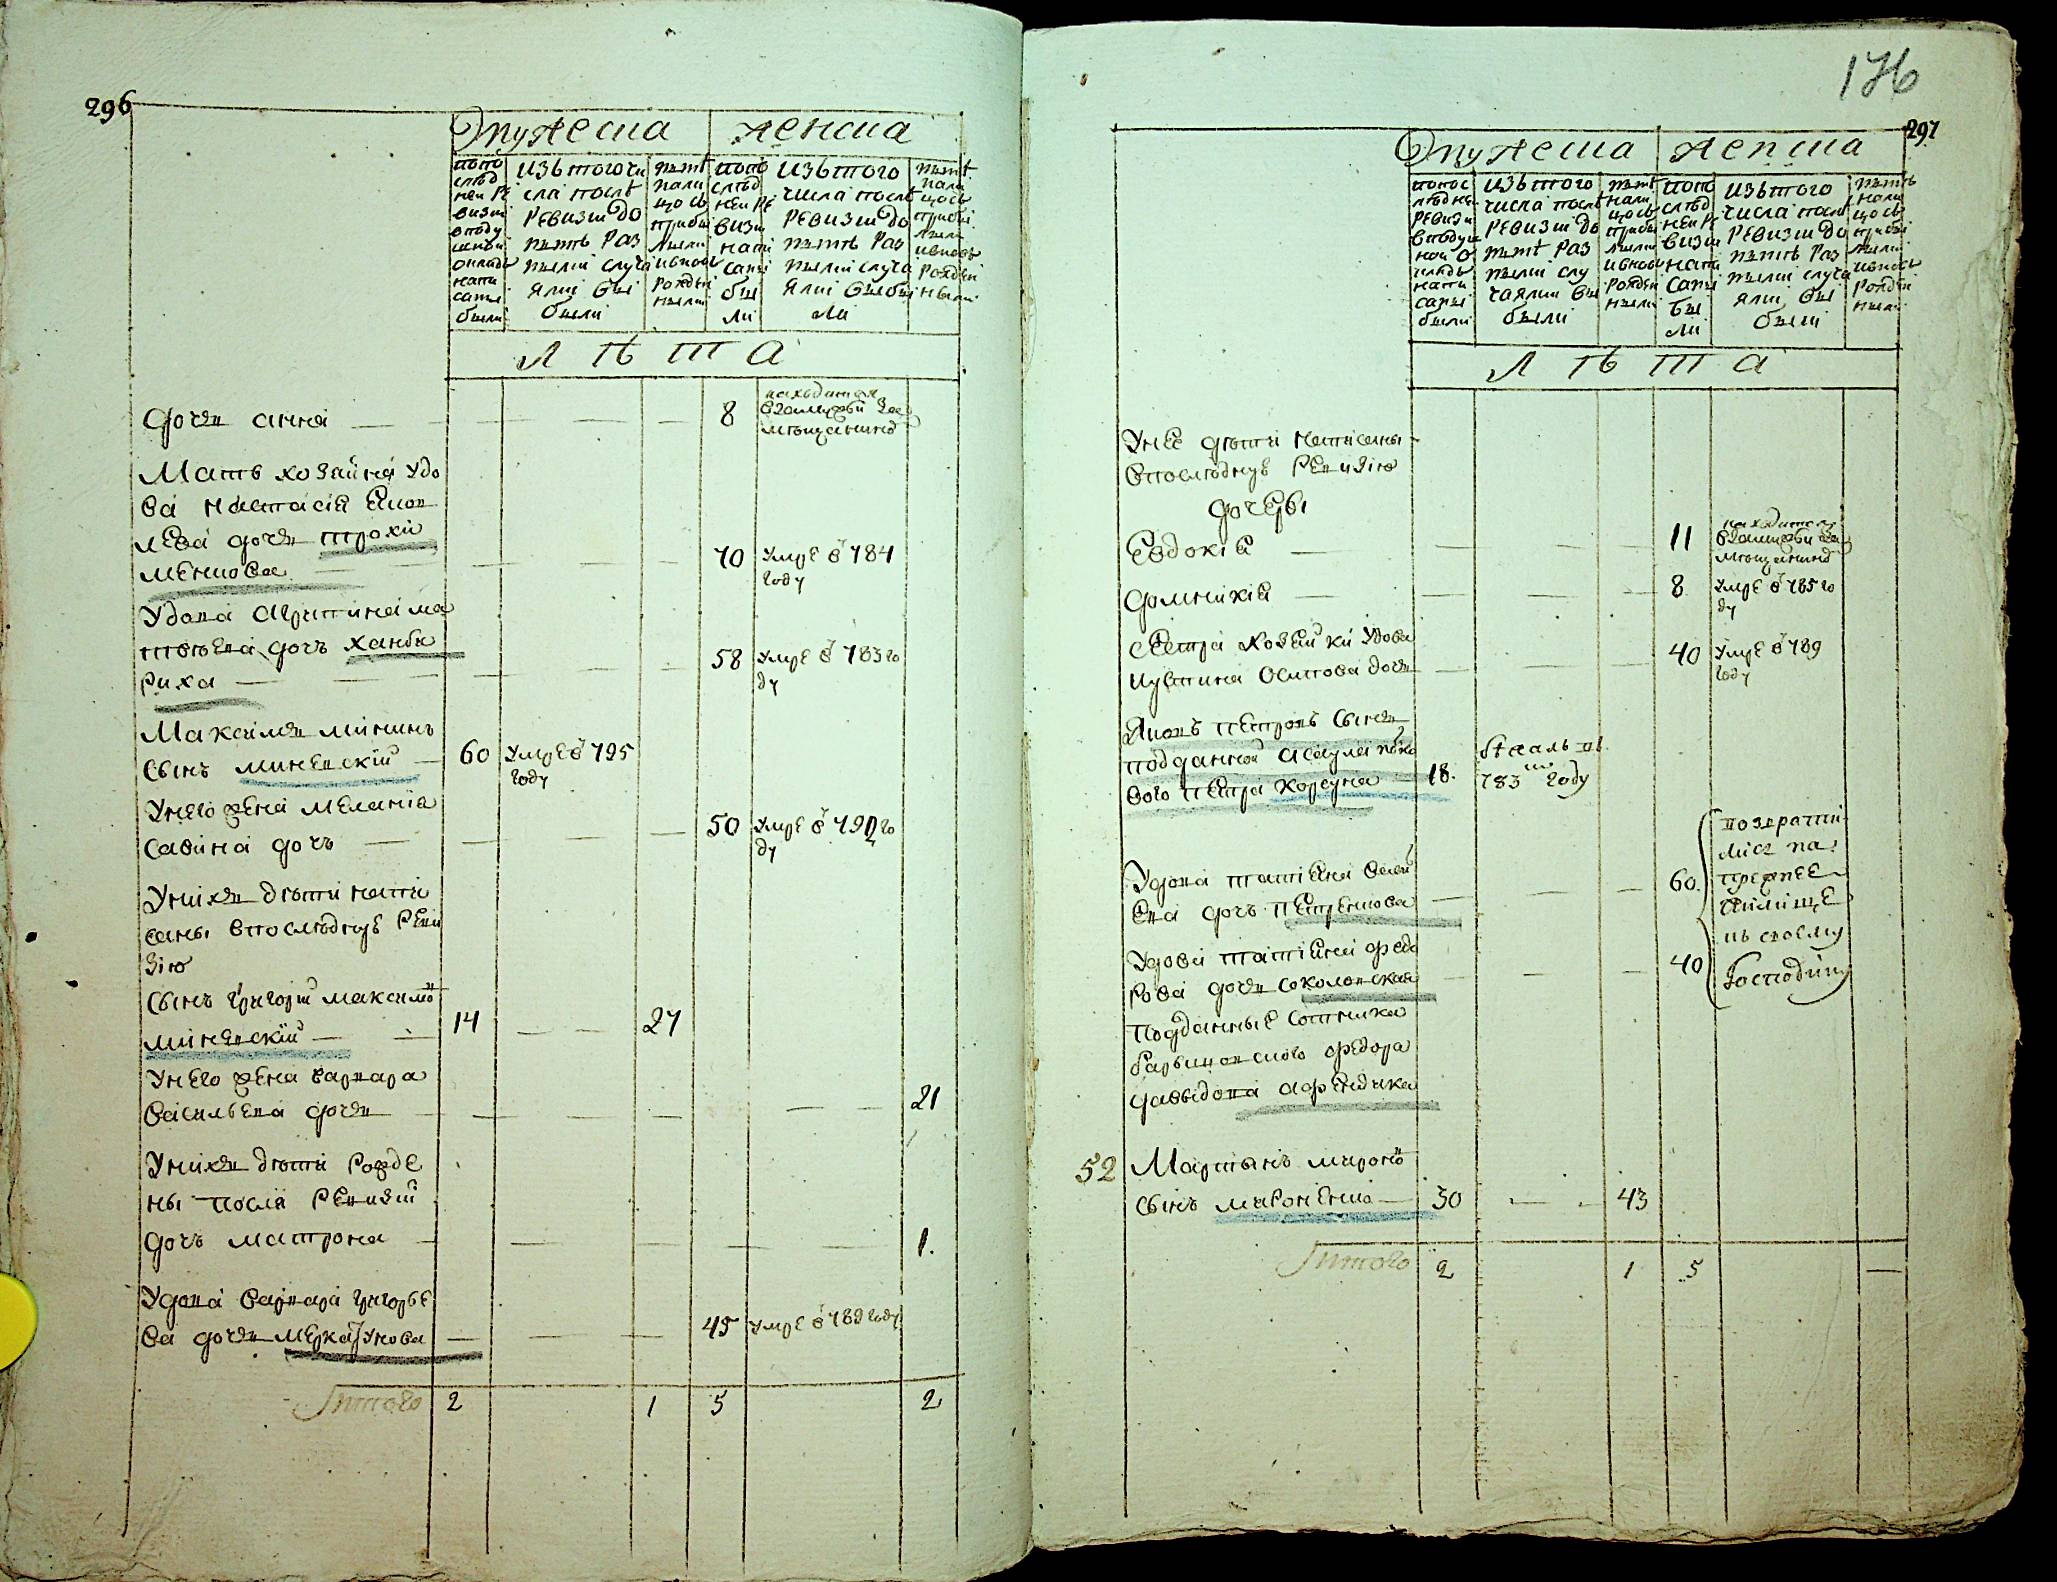 296
Мужеска
женска
попо
слѣд
ней ре
визи
въ поду
шный
окладъ
напи
саны
были
изъ того чи
сла послѣ
ревизии до
нынѣ раз
ными случа
ями вы
были
нынѣ
нали
цо съ
прибы
лыми
и вновь
рожден
ными
попо
слѣд
ней ре
визи
напи
саны
бы
ли
изъ того
числа после
ревизии до
нынѣ раз
ными случа
ями выбы
ли
нынѣ
нали
цо съ
прибы
лыми
и вновь
рожден
ными
Лѣта
дочь анна
8
находится
в замужьи за
мещанином
Мать хозяина удо
ва настасия яков
лева дочь трохи
менкова
70
умре в 784
году
Удова агрипина ма
твѣева дочь ханби
риха
58
умре в 783 го
ду
Максимъ мининъ
сынъ миневский
60
умре в 795
году
У него жена мелания
савина дочъ
50
умре в 790 го
ду
У нихъ дѣти напи
саны в последнюю реви
зию
Сынъ григорий максимо
миневский
14
27
У него жена варвара
васильева дочь
21
У нихъ дѣти рожде
ны после ревизии
дочъ матрона
1.
Удова варвара григорье
ва дочь меркатунова
45
умре в 789 году
Итого
2
1
5
2
176
297
Мужеска
женска
попос
лѣдней
ревизи
въ подуш
ной о
кладъ
напи
саны
были
изъ того
числа послѣ
ревизии до
нынѣ раз
ными слу
чаями вы
были
нынѣ
нали
цо съ
прибы
лыми
и вновь
рожден
ными
попо
слѣд
ней ре
визи
напи
саны
бы
ли
изъ того
числа послѣ
ревизии до
нынѣ раз
ными случа
ями вы
были
нынѣ
нали
цо съ
прибы
лыми
и вновь
рожден
ными
Лѣта
У нее дѣти написаны
в последнюю ревизию
дочеры
Евдокия
11
находится
в замужьи за
мещанином
домникия
8
умре в 785 го
ду
Сестра хозяйки удова
иустина осипова дочь
40
умре в 789
году
Яковъ петровъ сынъ
подданной асаула полко
вого петра корсуна
18.
бежалъ въ
783м году
Удова татияна васил
ева дочъ петренкова
60.
Удова татияна федо
рова дочь соколовская
40
возврати
лися на
прежнее
жилище
къ своему
господину
подданные сотника
барвинского федора
давыдова афендика
52
Мартынъ мироно
сынъ мироненко
30
43
Итого
2
1
5